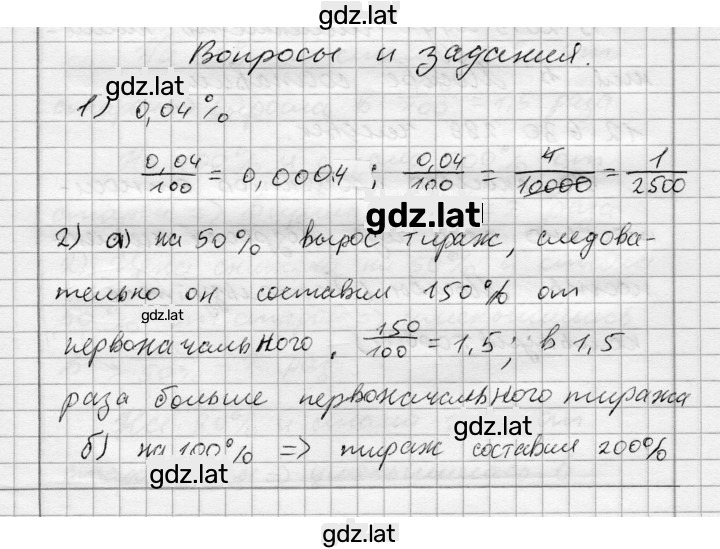 gdz.lat
Вопросы и задания.
gdz.lat
1) 0,04%
0,04/100 = 0,0004 ; 0,04/100 = 4/10000 = 1/2500
gdz.lat
2) а) на 50% вырос тираж, следова-
тельно он составил 150% от
gdz.lat
первоначального, 150/100 = 1,5 ; в 1,5
раза больше первоначального тиража
gdz.lat
б) на 100% => тираж составил 200%
gdz.lat
gdz.lat